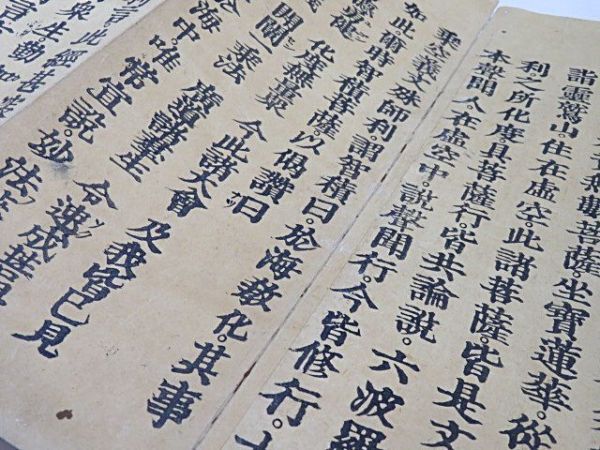 無數菩薩。坐寶蓮華。從
詣靈鷲山住在虛空。此諸菩薩。皆是文
利之所化度具菩薩行。皆共論說。六波羅
本聲聞人。在虛空中。說聲聞行。今皆修行。
乘空義文殊師利。謂智積曰。於海教化。其事
如此。爾時智積菩薩。以偈讚曰
化度無量衆 今此諸大會 及我皆已見
開闡一乘法 廣導諸衆生 令速成菩提
海中唯常宣說。妙法
言此經甚深
衆生勤加